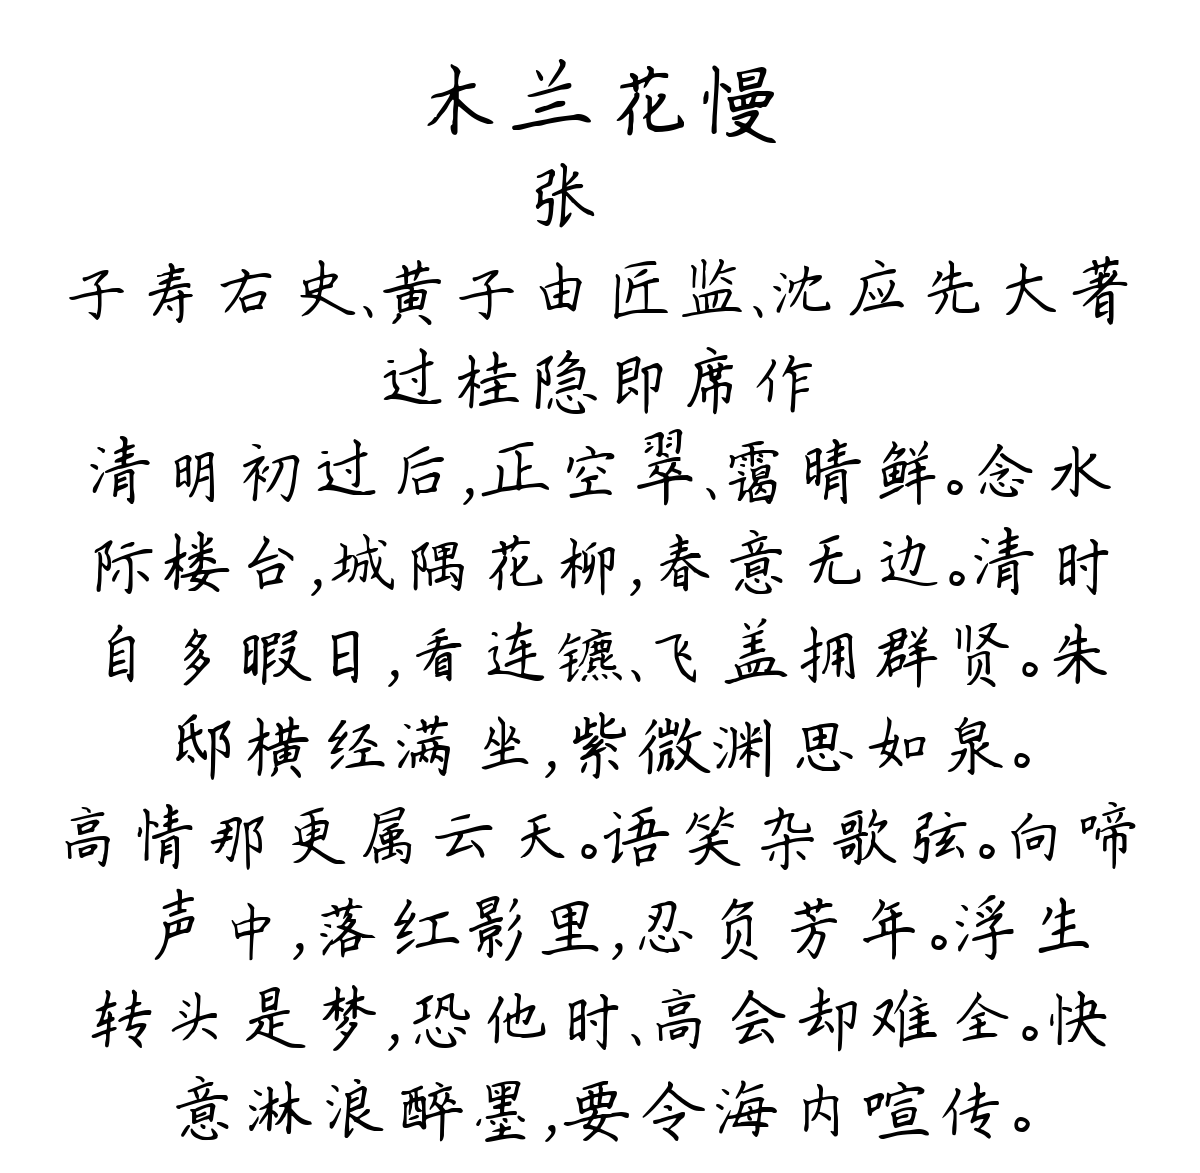 木兰花慢
张
子寿右史、黄子由匠监、沈应先大著
过桂隐即席作
清明初过后,正空翠、霭晴鲜。念水
际楼台,城隅花柳,春意无边。清时
自多暇日,看连镳、飞盖拥群贤。朱
邸横经满坐,紫微渊思如泉。
高情那更属云天。语笑杂歌弦。向啼
声中,落红影里,忍负芳年。浮生
转头是梦,恐他时、高会却难全。快
意淋浪醉墨,要令海内喧传。